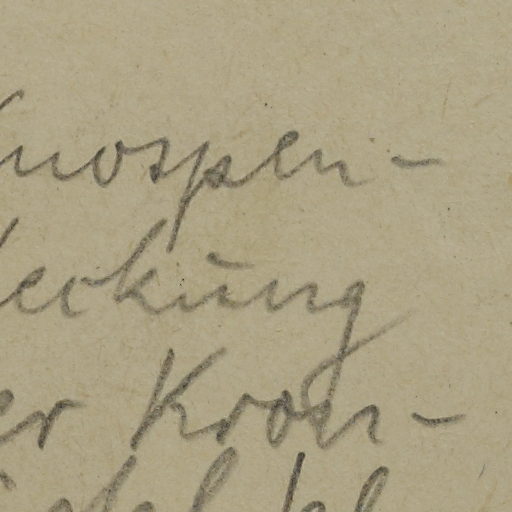 Knospen-
deckung
er Kron-